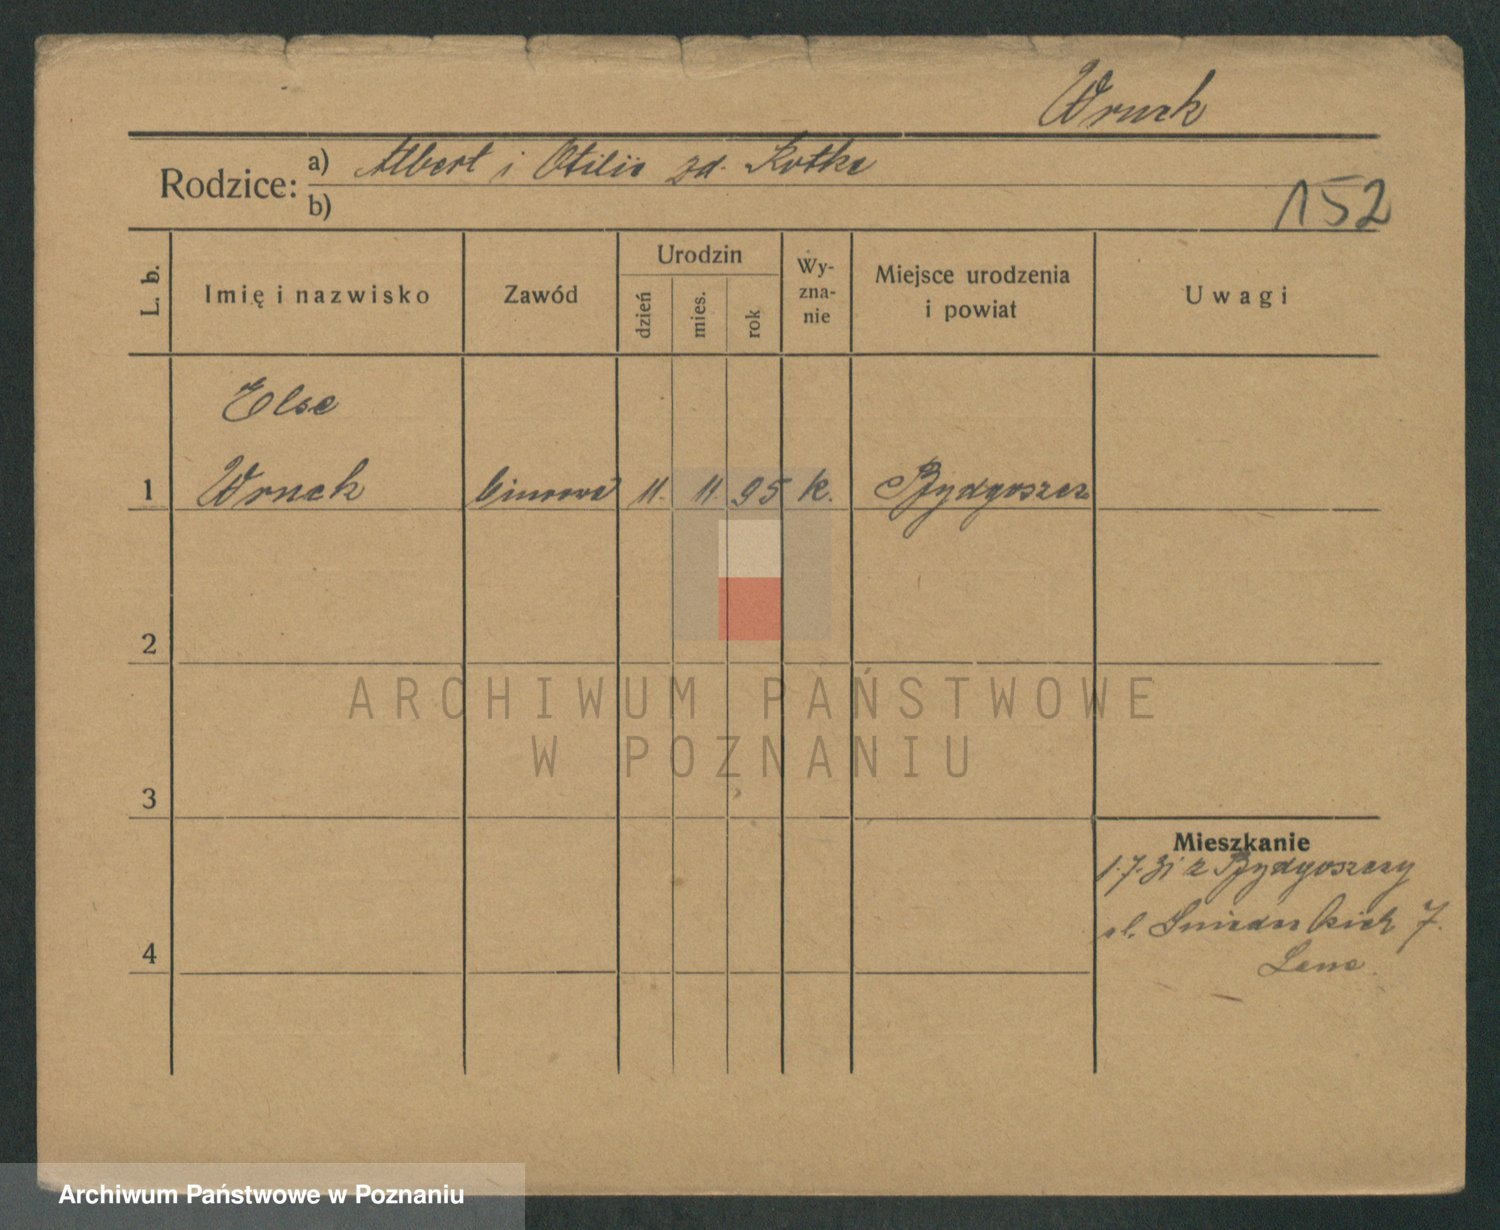 Wruck
Rodzice:
a) Albert i Otilie zd. Kutke
b)
152
L. b.
Imię i nazwisko
Zawód
Urodzin
dzień
mies.
rok
Wy-
zna-
nie
Miejsce urodzenia
i powiat
Uwagi
Else
1 Wruck biurowa 11. 11. 95 k. Bydgoszcz
2
3
4
Mieszkanie
1.7.31 z Bydgoszczy
ul. Śniadeckich 7.
ARCHIWUM PAŃSTWOWE
W POZNANIU
Archiwum Państwowe w Poznaniu